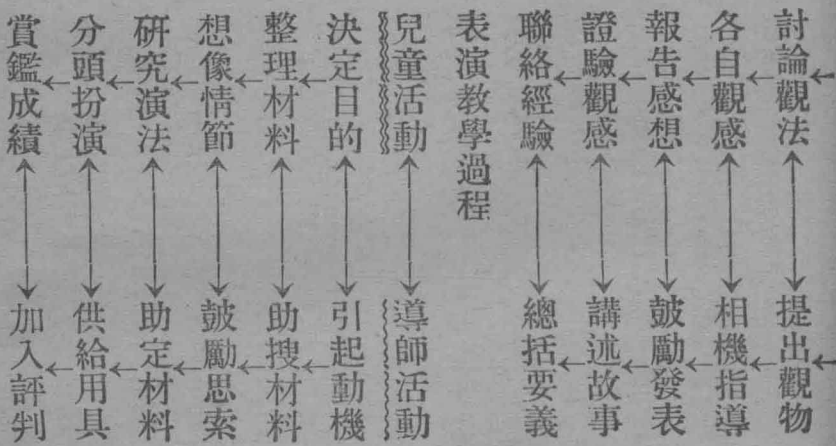 討論觀法 提出觀物
各自觀感 相機指導
報告感想 鼓勵發表
證驗觀感 講述故事
聯絡經驗 總括要義
表演教學過程
兒童活動 導師活動
決定目的 引起動機
整理材料 助搜材料
想像情節 鼓勵思索
研究演法 助定材料
分頭扮演 供給用具
賞鑑成績 加入評判